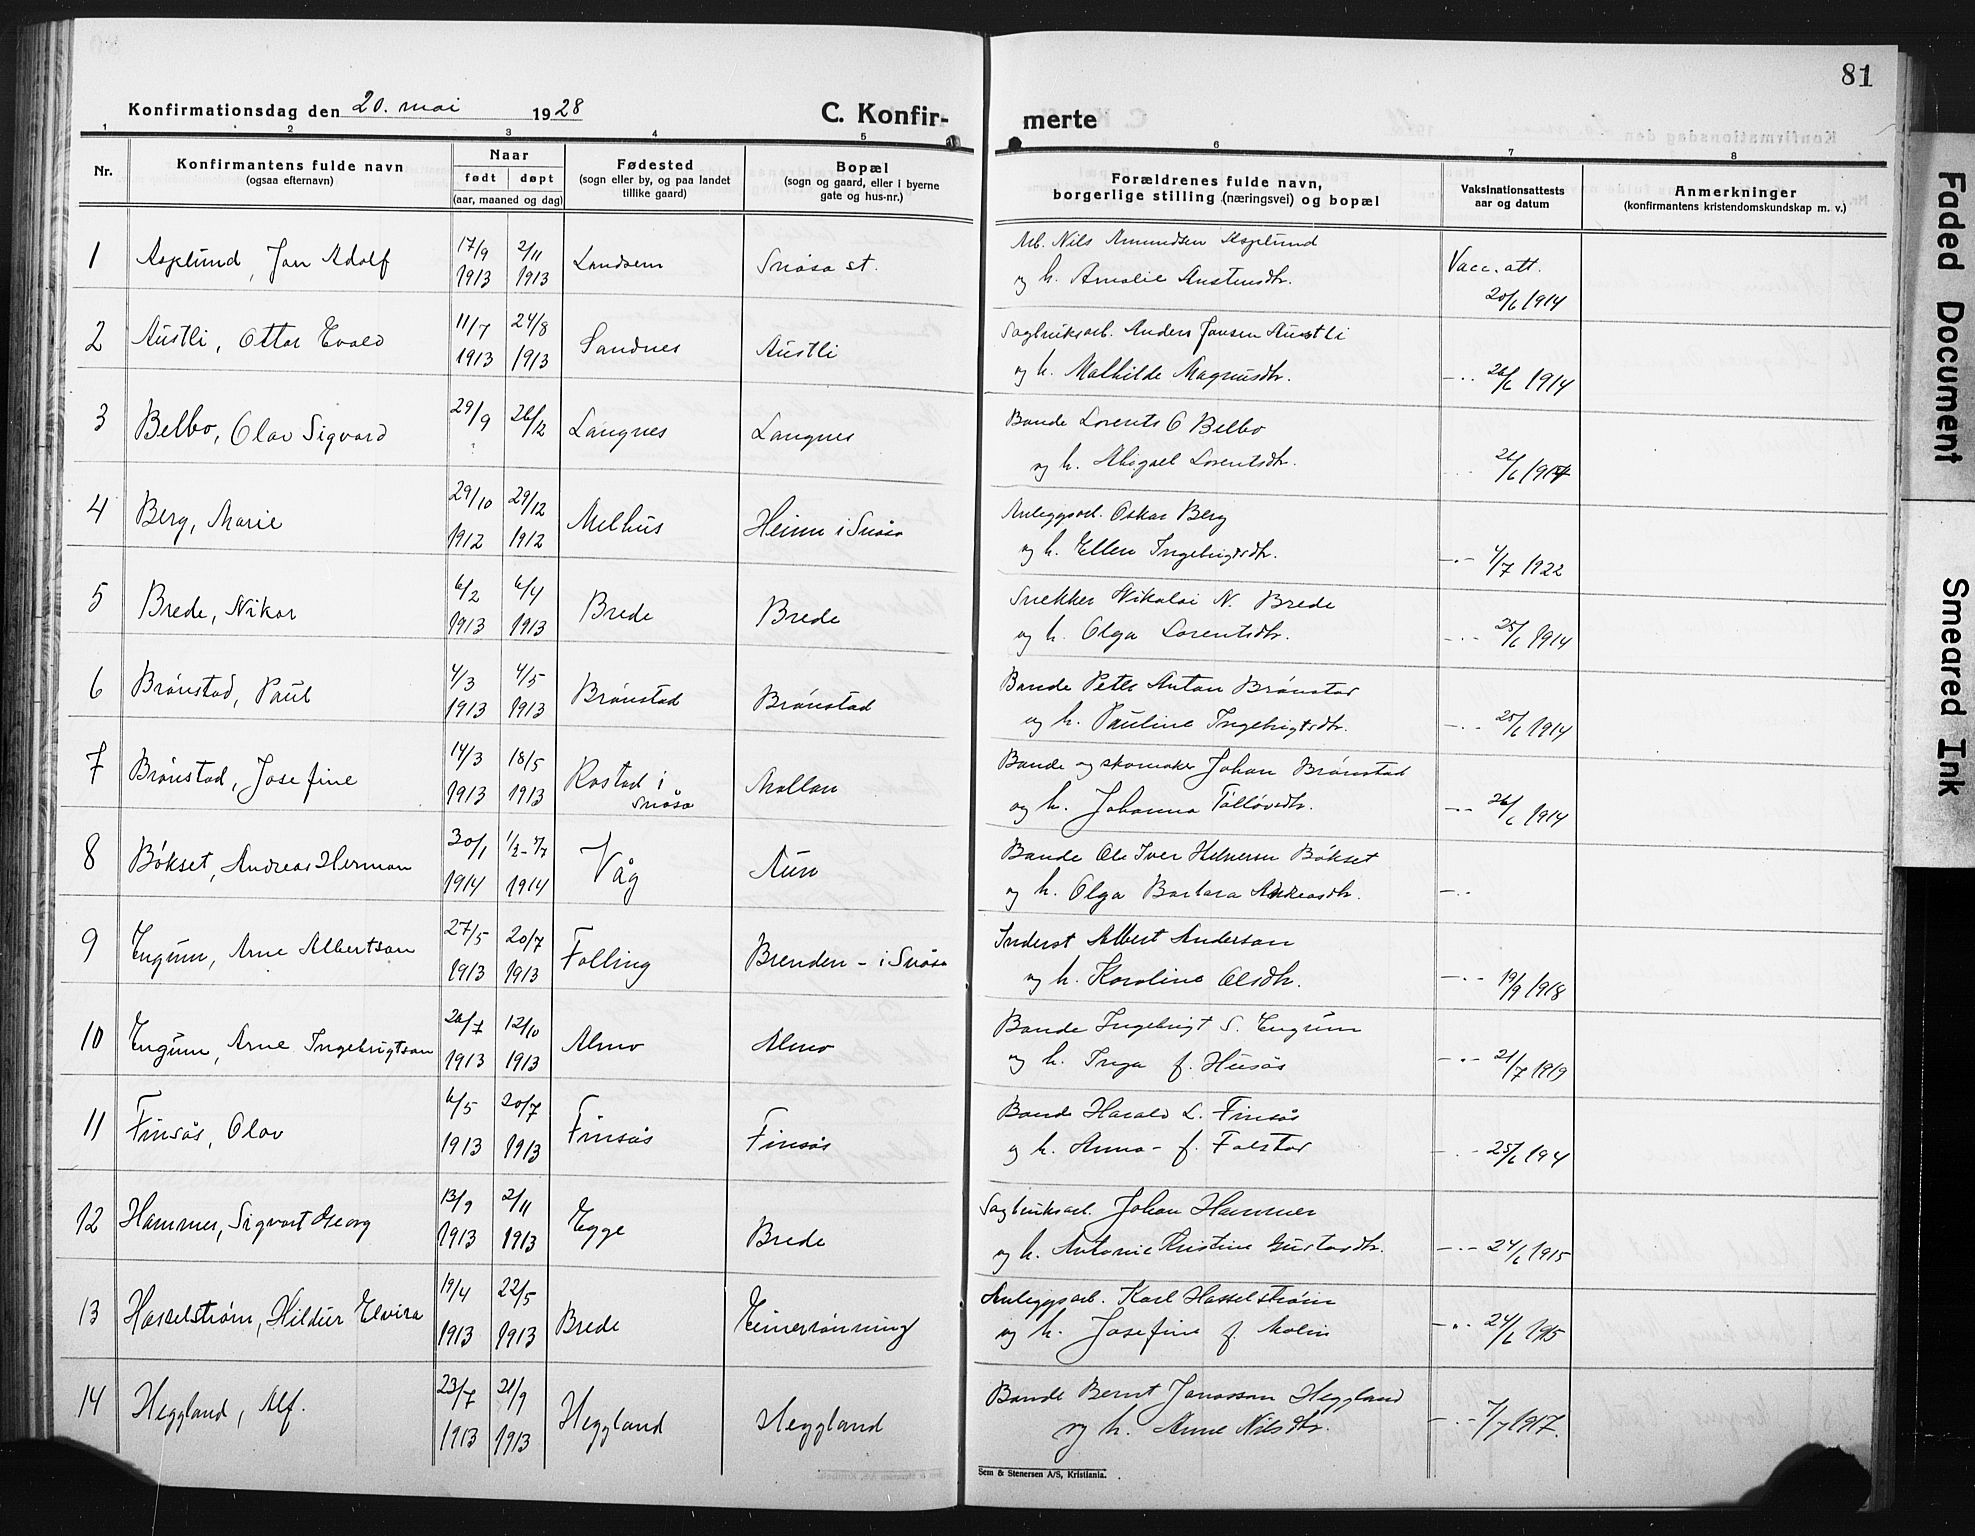 81
Konfirmationsdag den 20. mai 1928
C. Konfirmerte
1 2 3 4 5 6 7 8
Nr.
Konfirmantens fulde navn
(ogsaa efternavn)
Naar
født døpt
(aar, maaned og dag)
Fødested
(sogn eller by, og paa landet
tillike gaard)
Bopæl
(sogn og gaard, eller i byerne
gate og hus-nr.)
Forældrenes fulde navn,
borgerlige stilling (næringsvei) og bopæl
Vaksinationsattests
aar og datum
Anmerkninger
(konfirmantens kristendomskundskap m. v.)
1 Asplund, Jon Adolf 17/9 1913 2/11 1913 Landsem Snåsa st.
Arb. Nils Amundsen Asplund
og h. Amalie Austensdtr.
Vacc. att.
20/6 1914
2 Austli, Ottar Evald 11/7 1913 24/8 1913 Sandnes Austli
Sagbruksarb. Anders Jonsen Austli
og h. Mathilde Magnusdtr. -.- 26/6 1914
3 Belbo, Olav Sigvard 29/9 26/12 Langnes Langnes
Bonde Lorents O Belbo
og h. Abigael Lorentsdtr. 26/6 1914
4 Berg, Marie 29/10 1912 29/12 1912 Melhus Heimn i Snåsa
Anleggsarb. Oskar Berg
og h. Ellen Ingebrigtsdtr. -.- 4/7 1922
5 Brede, Nikar 6/2 1913 6/4 1913 Brede Brede
Snekker Nikolai N. Brede
og h. Olga Lorentsdtr. -.- 25/6 1914
6 Brønstad, Paul 4/3 1913 4/5 1913 Brønstad Brønstad
Bonde Peter Anton Brønstad
og h. Pauline Ingebrigtsdtr. -.- 25/6 1914
7 Brønstad, Josefine 14/3 1913 18/5 1913 Rostad i Snåsa Mollan
Bonde og skomaker Johan Brønstad
og h. Johanna Tølløvsdtr. -.- 26/6 1914
8 Bøkset, Andreas Herman 30/1 1914 1/2 - 7/7 1914 Våg Aun
Bonde Ole Iver Bøkset
og h. Olga Barbara Andreasdtr. -.-
9 Engum, Arne Albertson 27/5 1913 20/7 1913 Følling Brenden - i Snåsa
Inderst Albert Anderson
og h. Karoline Olsdtr. -.- 19/9 1918
10 Engum, Arne Ingebrigtson 20/7 1913 12/10 1913 Almo Almo
Bonde Ingebrigt S. Engum
og h. Inga f. Husås -.- 21/7 1919
11 Finsås, Olav 6/5 1913 20/7 1913 Finsås Finsås
Bonde Harald L. Finsås
og h. Anna - f. Falstad -.- 25/6 194
12 Hammer, Sigvart Georg 13/9 1913 2/11 1913 Egge Brede
Sagbruksarb. Johan Hammer
og h. Antonie Kristine Gustavdtr. -.- 24/6 1915
13 Hasselstrøm, Hildur Elvira 19/4 1913 22/5 1913 Brede Heimerønning
Anleggsarb. Karl Hasselstrøm
og h. Josefine f. Molin -.- 24/6 1915
14 Heggland, Alf. 23/7 1913 21/9 1913 Heggland Heggland
Bonde Bernt Jonasson Heggland
og h. Anne Nilsdtr. -.- 7/7 1917.
Sem & Stenersen A/S, Kristiania.
Faded Document
Smeared Ink